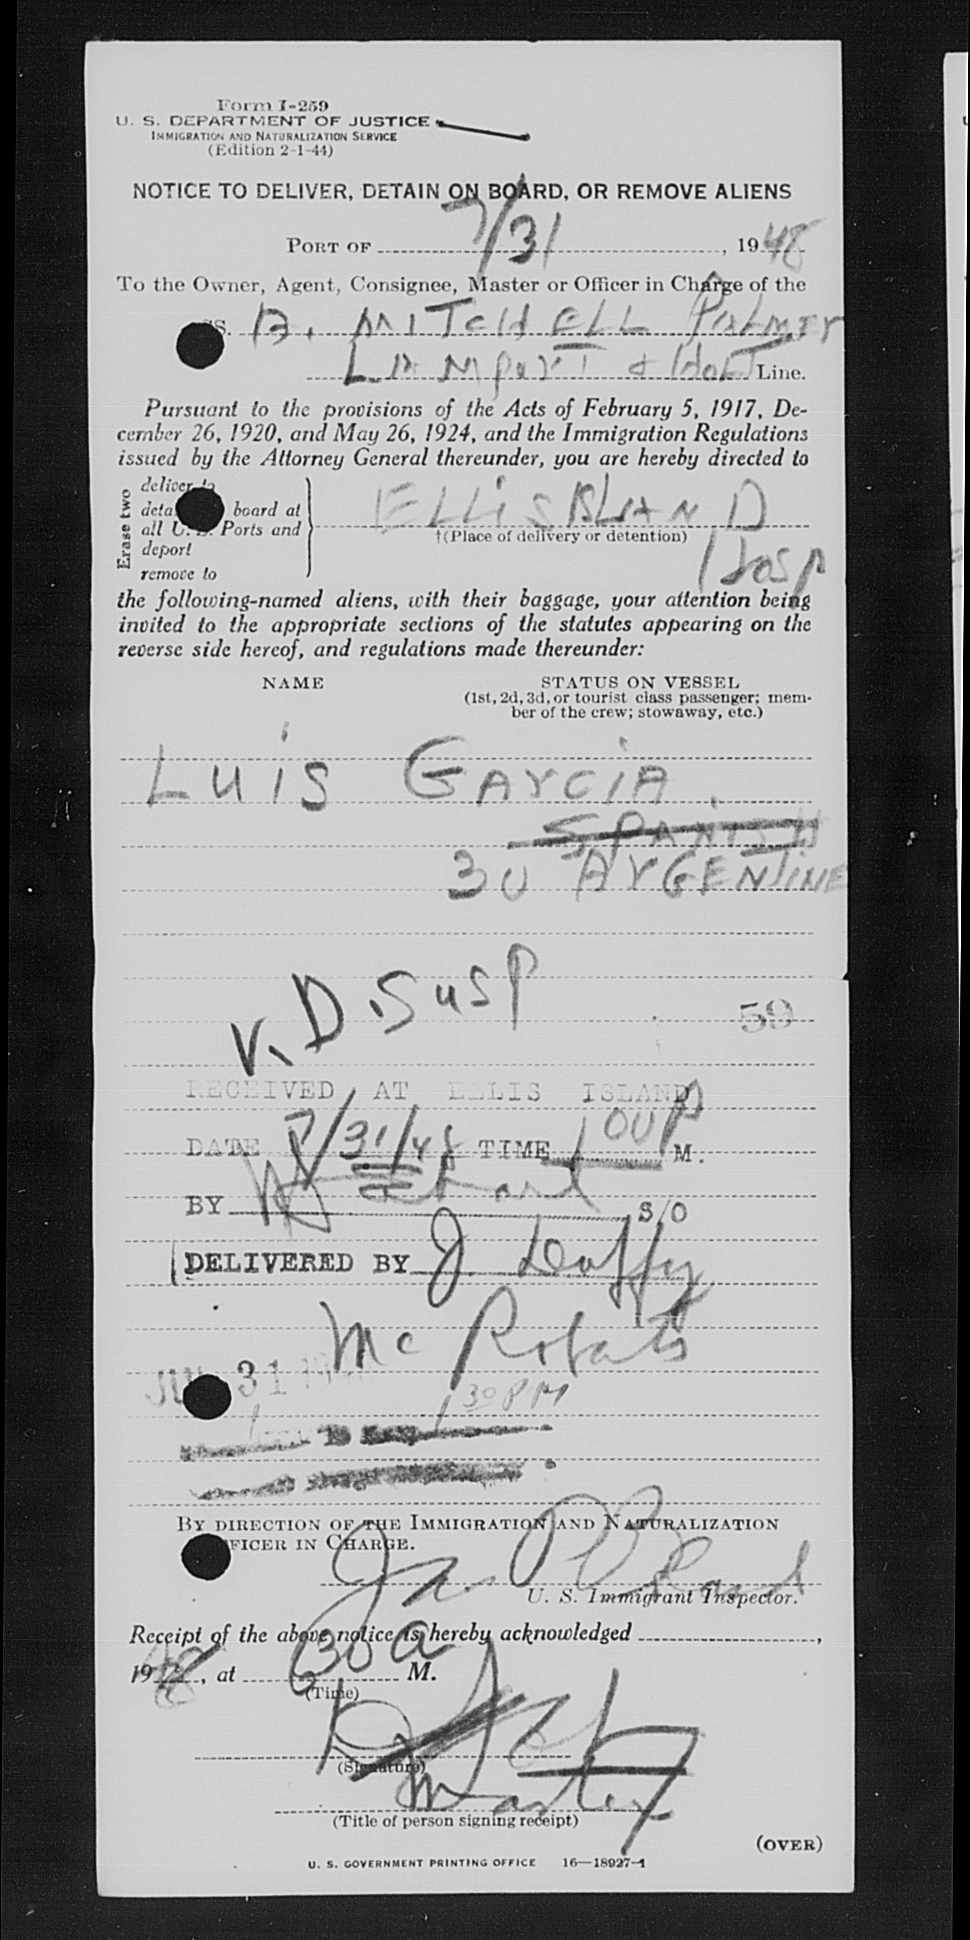 Form I-259
U. S. DEPARTMENT OF JUSTICE
IMMIGRATION AND NATURALIZATION SERVICE
(Edition 2-1-44)
NOTICE TO DELIVER, DETAIN ON BOARD, OR REMOVE ALIENS
PORT OF 7/31, 1948
To the Owner, Agent, Consignee, Master or Officer in Charge of the
SS. A. MITCHELL PALMER
LAMPORT & HOLT Line.
Pursuant to the provisions of the Acts of February 5, 1917, De-
cember 26, 1920, and May 26, 1924, and the Immigration Regulations
issued by the Attorney General thereunder, you are hereby directed to
Erase two
deliver to
deta board at
all U. S. Ports and
deport
remove to
ELLIS ISLAND
†(Place of delivery or detention)
Hosp
the following-named aliens, with their baggage, your attention being
invited to the appropriate sections of the statutes appearing on the
reverse side hereof, and regulations made thereunder:
NAME STATUS ON VESSEL
(1st, 2d, 3d, or tourist class passenger; mem-
ber of the crew; stowaway, etc.)
LUIS GARCIA
SPANISH
30 ARGENTINE
V.D. Susp
59
RECEIVED AT ELLIS ISLAND
DATE 7/31/48 TIME 100 P M.
BY S/O
DELIVERED BY J. Duffy
Mc Roberts
31
1 30 PM
BY DIRECTION OF THE IMMIGRATION AND NATURALIZATION
FICER IN CHARGE.
U. S. Immigrant Inspector.
Receipt of the above notice is hereby acknowledged ,
1948, at 630 a M.
(Time)
(Signature)
Master
(Title of person signing receipt)
(OVER)
U. S. GOVERNMENT PRINTING OFFICE 16—18927-1